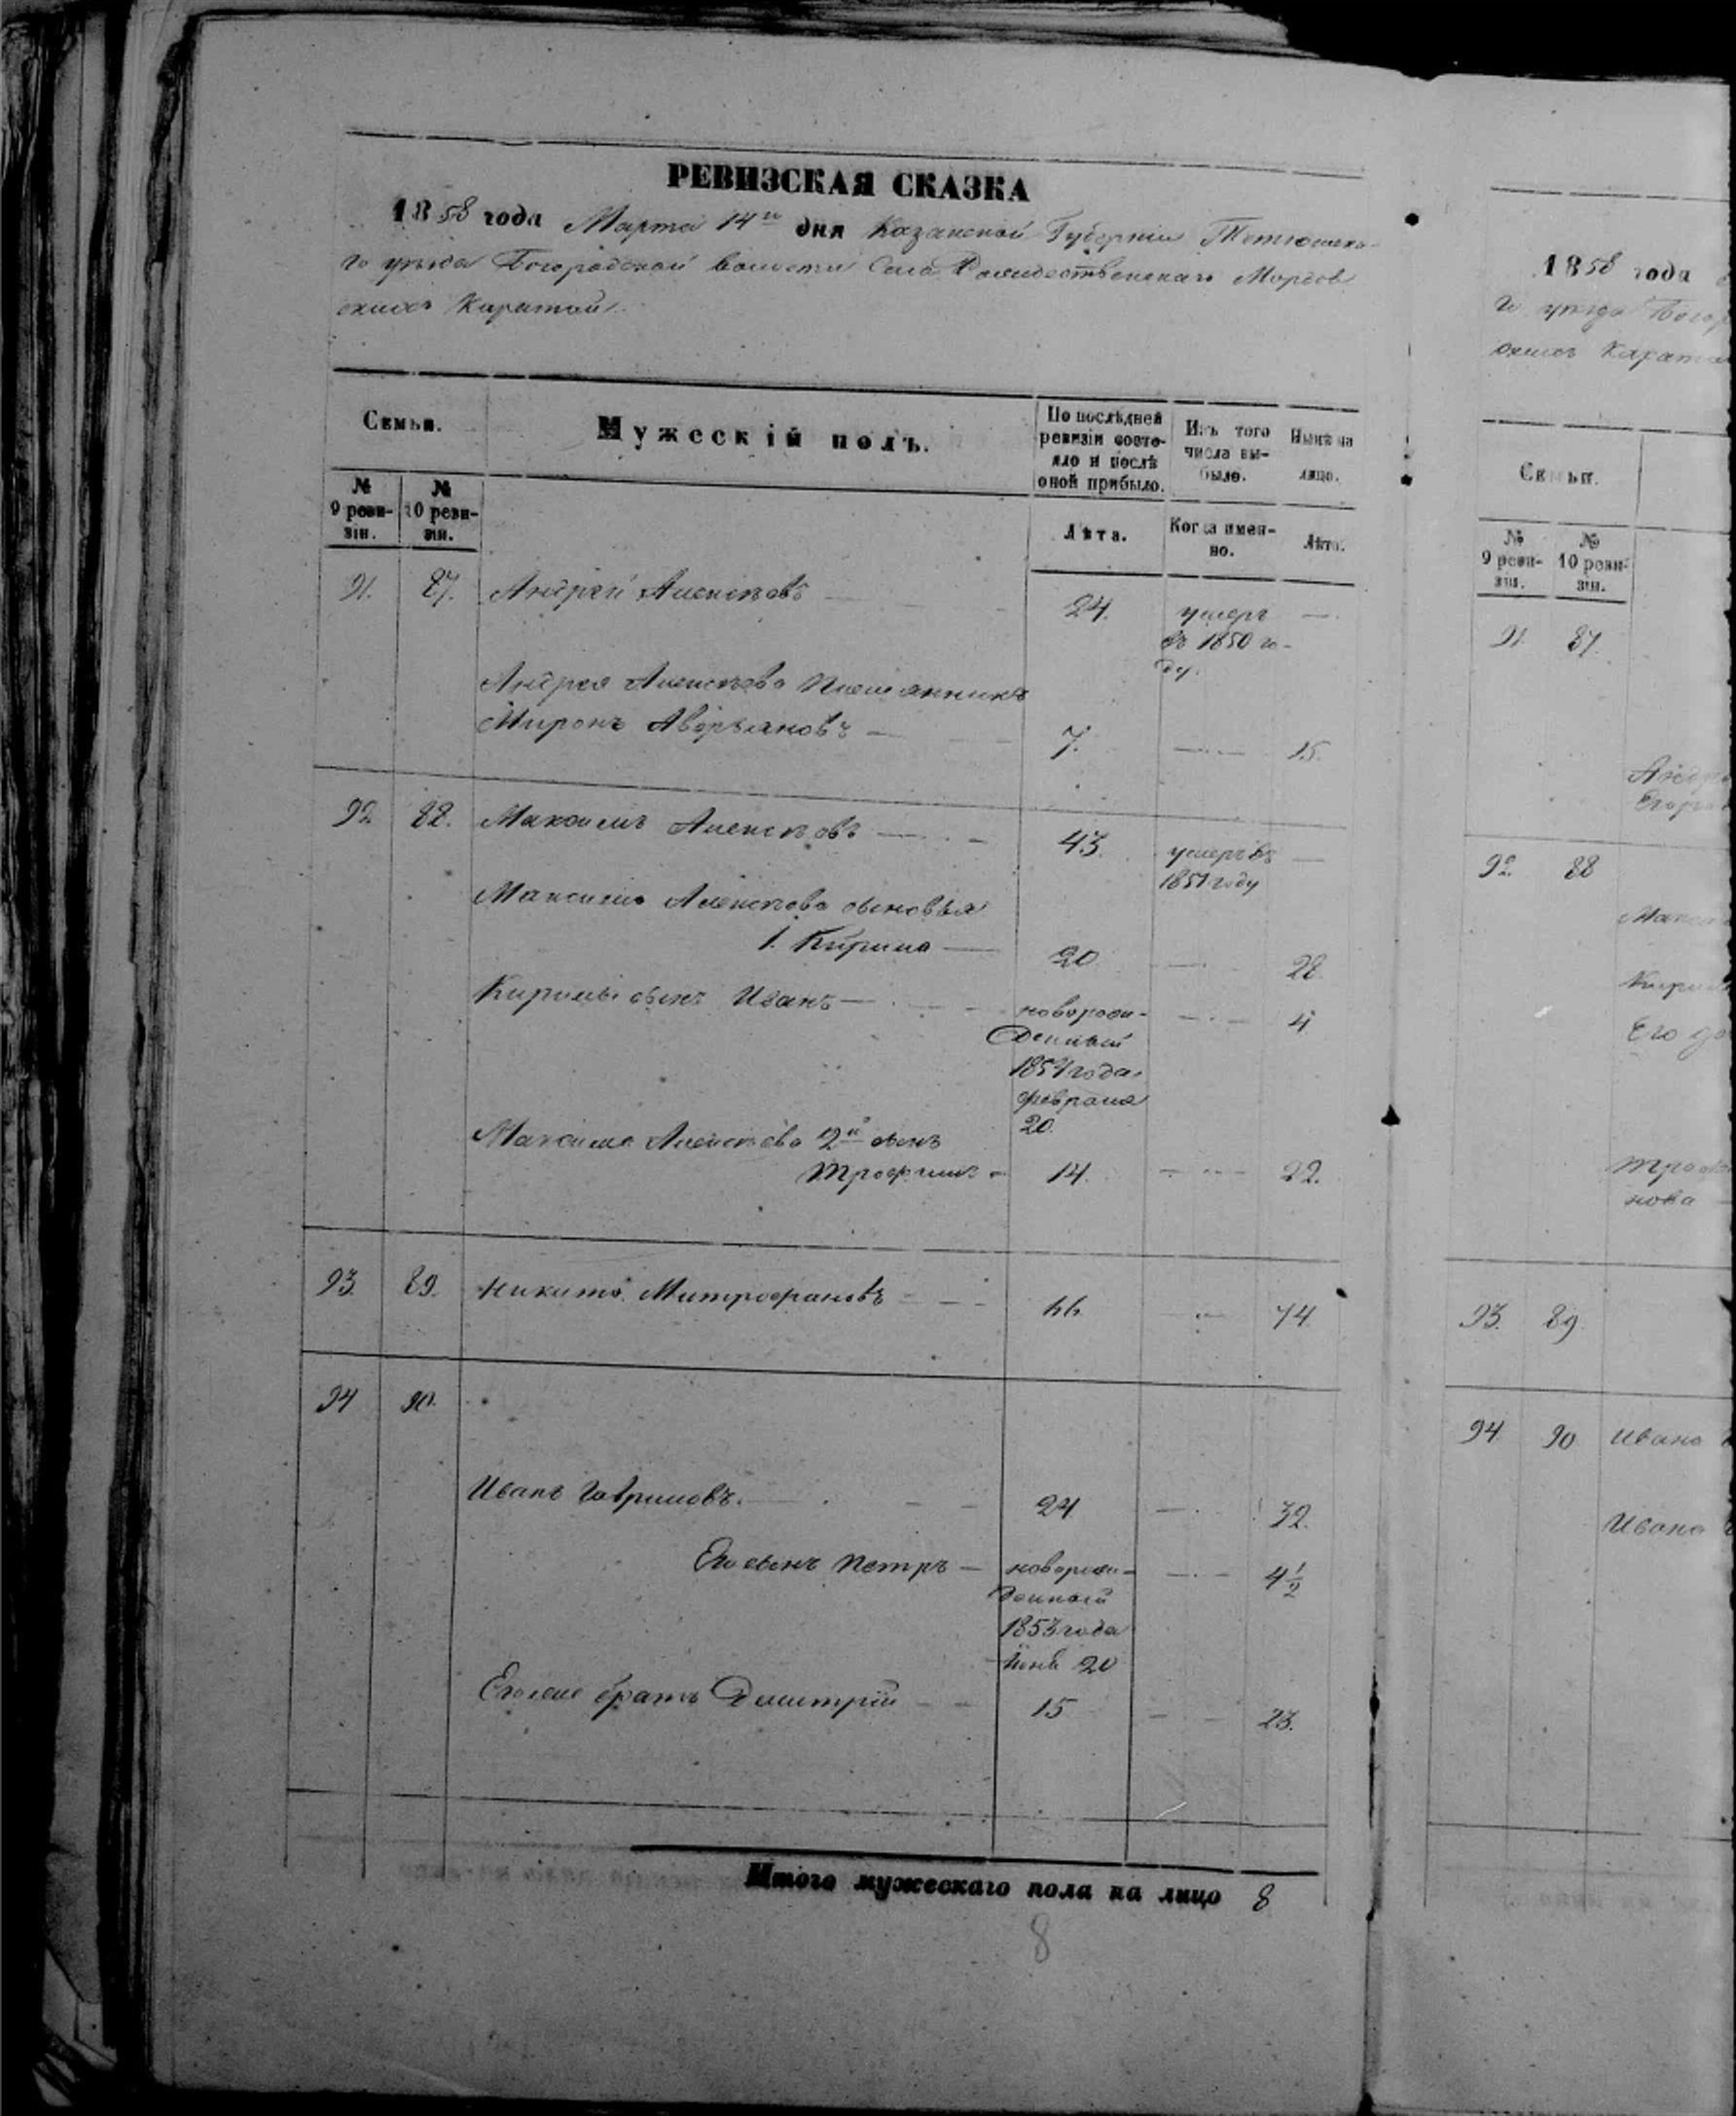 РЕВИЗСКАЯ СКАЗКА
1858 года Марта 14го дня Казанской Губернiи Тетюшска-
го уѣзда Богородской волости Села Рождественскаго Мордов
скихъ Каратай
Семьи.
Мужескiй полъ.
По послѣдней ревизiи состояло и послѣ оной прибыло.
Изъ того числа выбыло.
Нынѣ на лицо.
№ 9 ревизiи.
№ 10 ревизiи.
Лѣта.
Когда именно.
Лѣта.
91. 87. Андрей Алексѣевъ 24. умеръ —
въ 1850 го-
ду.
Андрея Алексѣева племянникъ
Миронъ Аверьяновъ — 7. — 15.
92 88. Максимъ Алексѣевъ — 43. умеръ въ —
1851 году
Максима Алексѣева сыновья
1. Кирила — 20 — 28.
Кирилы сынъ Иванъ — новорож- — 4
денный
1854 года
февраля
20.
Максима Алексѣева 2й сынъ
Трофимъ — 14. — 22.
93. 89. Никита Митрофановъ — 66 — 74
94 90.
Иванъ Гавриловъ. — 24 — 32.
Его сынъ Петръ — новорож- — 4½
денный
1853 года
20
Его же братъ Дмитрiй — 15 — 23.
Итого мужескаго пола на лицо 8
8
1858 года
го уѣзда Богор
скихъ Карата
Семьи.
№ 9 ревизiи.
№ 10 ревизiи.
91. 87.
Андре
92. 88
Максим
Кирил
Его до
Трофи
нова
93. 89
94 90 Ивана
Ивана